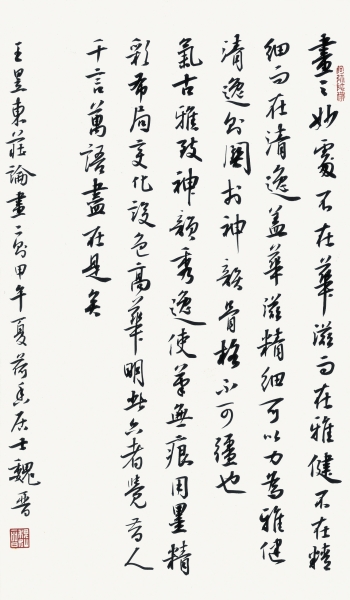 畫之妙處不在華滋而在雅健不在精
細而在清逸蓋華滋精細可以力為雅健
清逸則關於神韻骨格不可彊也
氣古雅致神韻秀逸使筆無痕用墨精
彩布局變化設色高華明此六者覺昔人
千言萬語盡在是矣
王昱東莊論畫二則甲午夏荷香居士魏晉